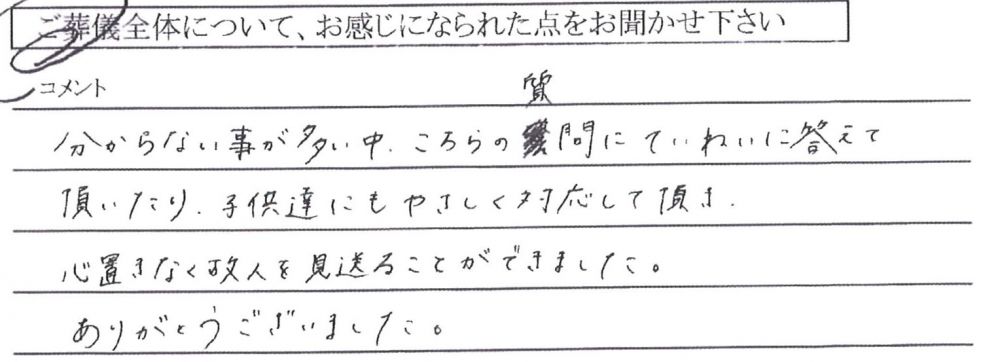 ご葬儀全体について、お感じになられた点をお聞かせ下さい
コメント
分からない事が多い中、こちらの質問にていねいに答えて
頂いたり、子供達にもやさしく対応して頂き、
心置きなく故人を見送ることができました。
ありがとうございました。